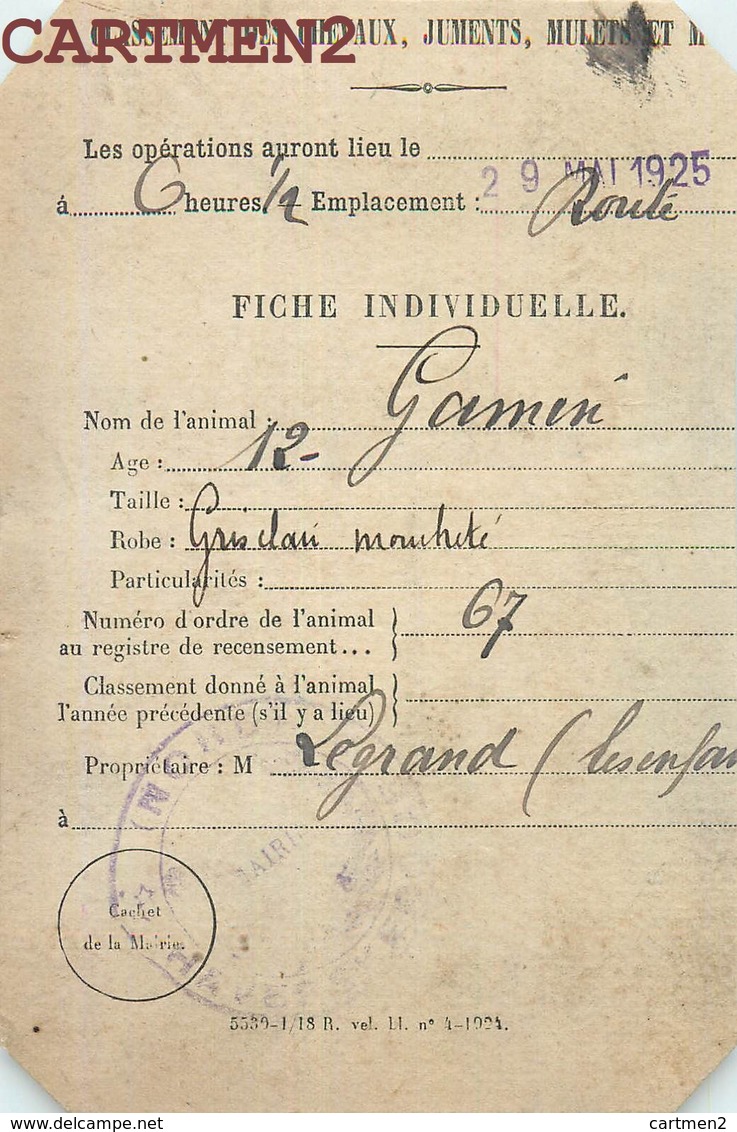 CARTMEN2
CLASSEMENT DES CHEVAUX, JUMENTS, MULETS ET M
Les opérations auront lieu le 29 MAI 1925
á 6 heures 1/2 Emplacement : Route
FICHE INDIVIDUELLE.
Nom de l'animal : Gamin
Age : 12-
Taille :
Robe : Gris clair moucheté
Particularités :
Numéro d'ordre de l'animal
au registre de recensement... 67
Classement donné à l'animal
l'année précédente (s'il y a lieu)
Propriétaire : M Legrand (les enfan
à
MAIRIE
Cachet
de la Mairie.
5539-1/18 R. vel. Ll. nº 4-1924.
delcampe.net
cartmen2